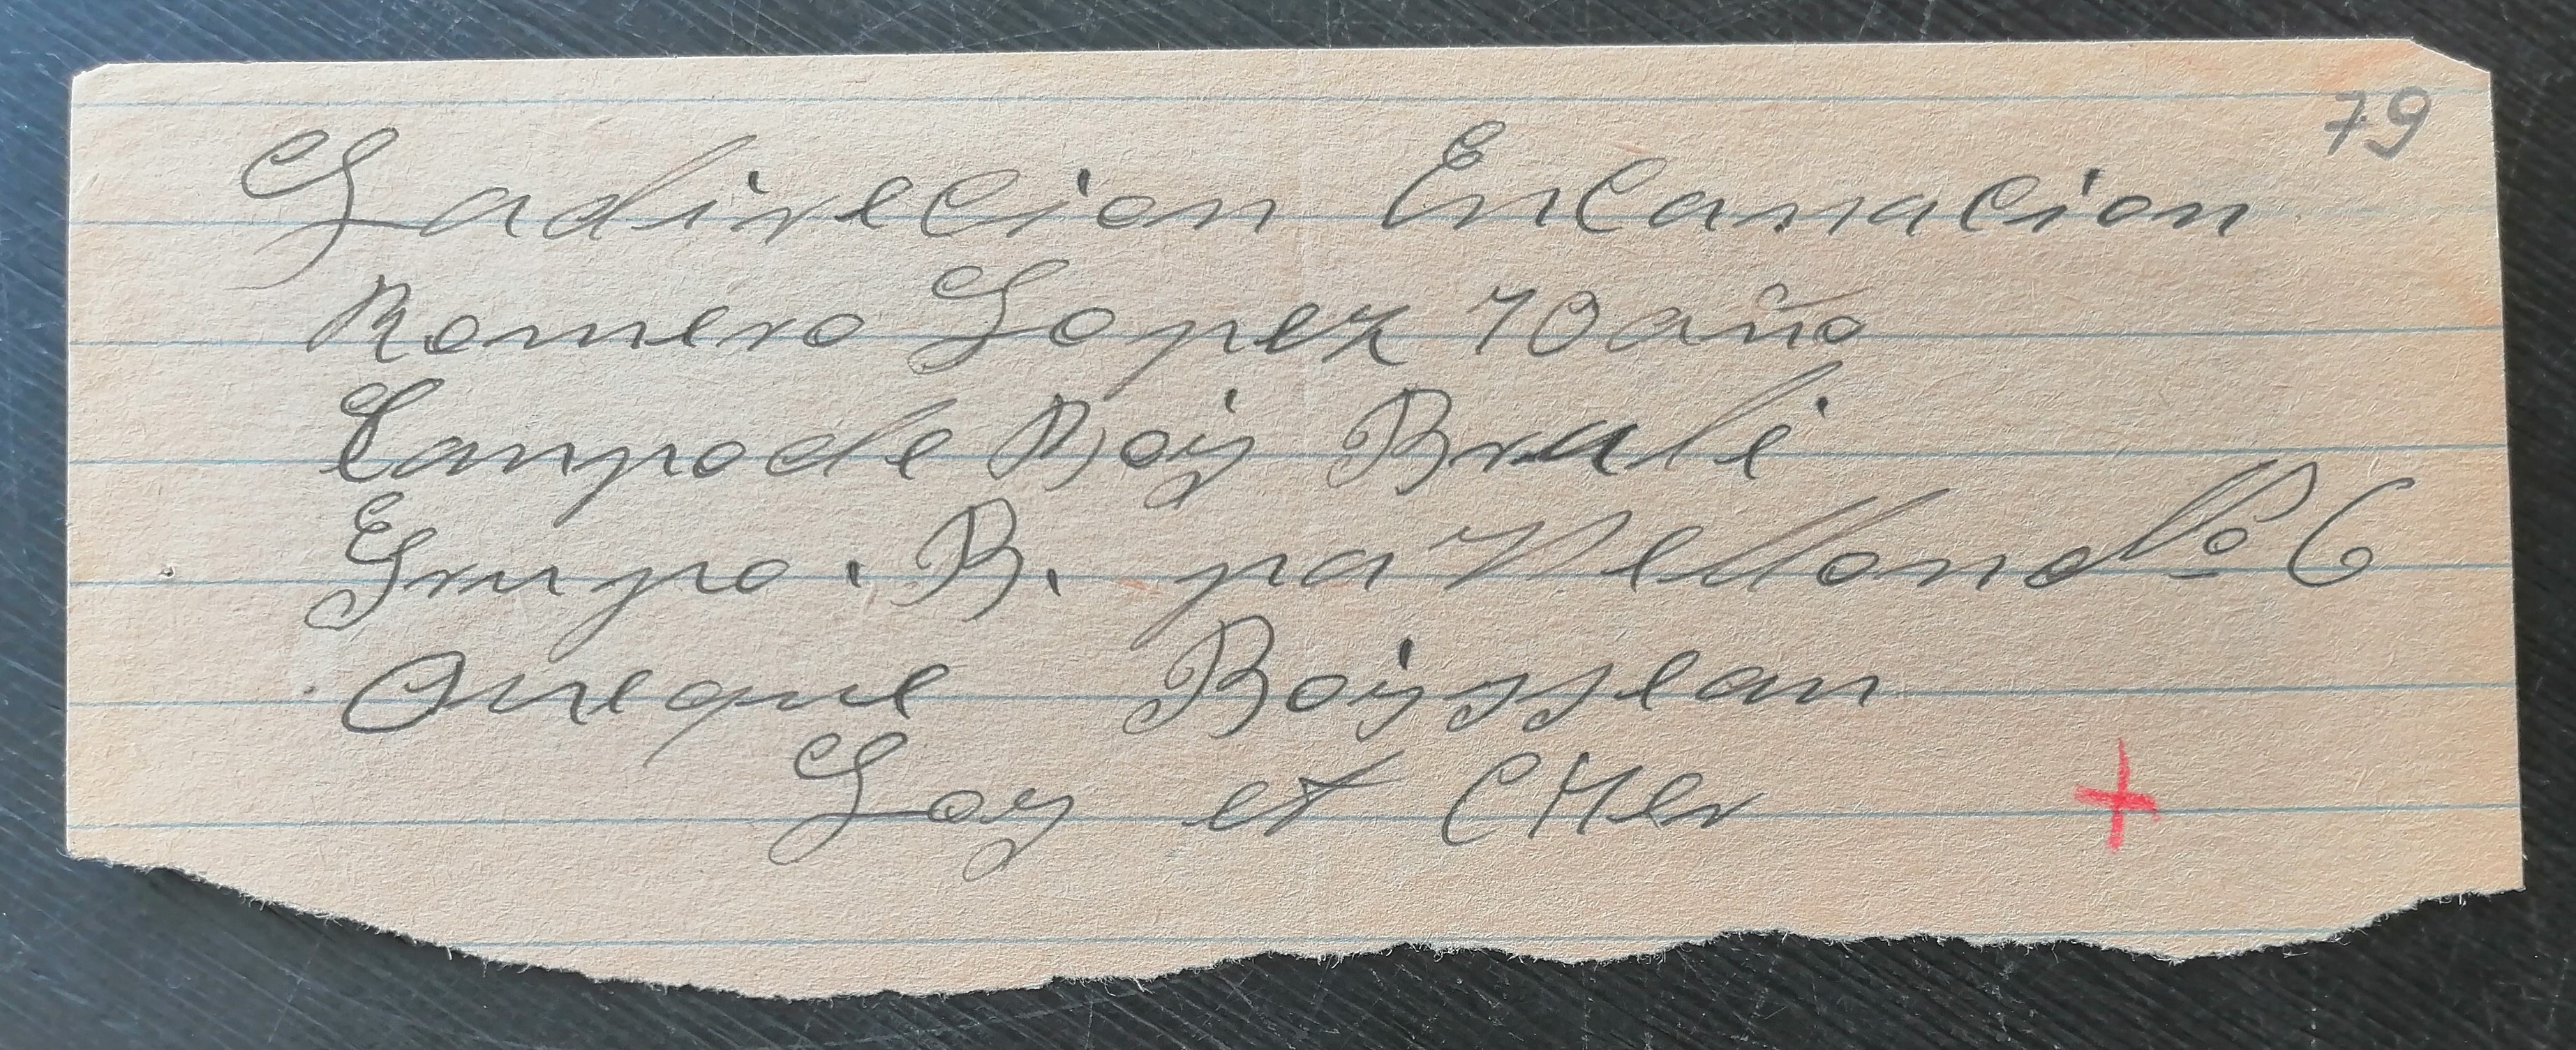 79
Ladirecion Encarnacion
Romero Lopez 70 año
Campode Boij Brali
Grupo . B. pavellond Nº 6
Oureque Boijsseau
Loy et CHer
+